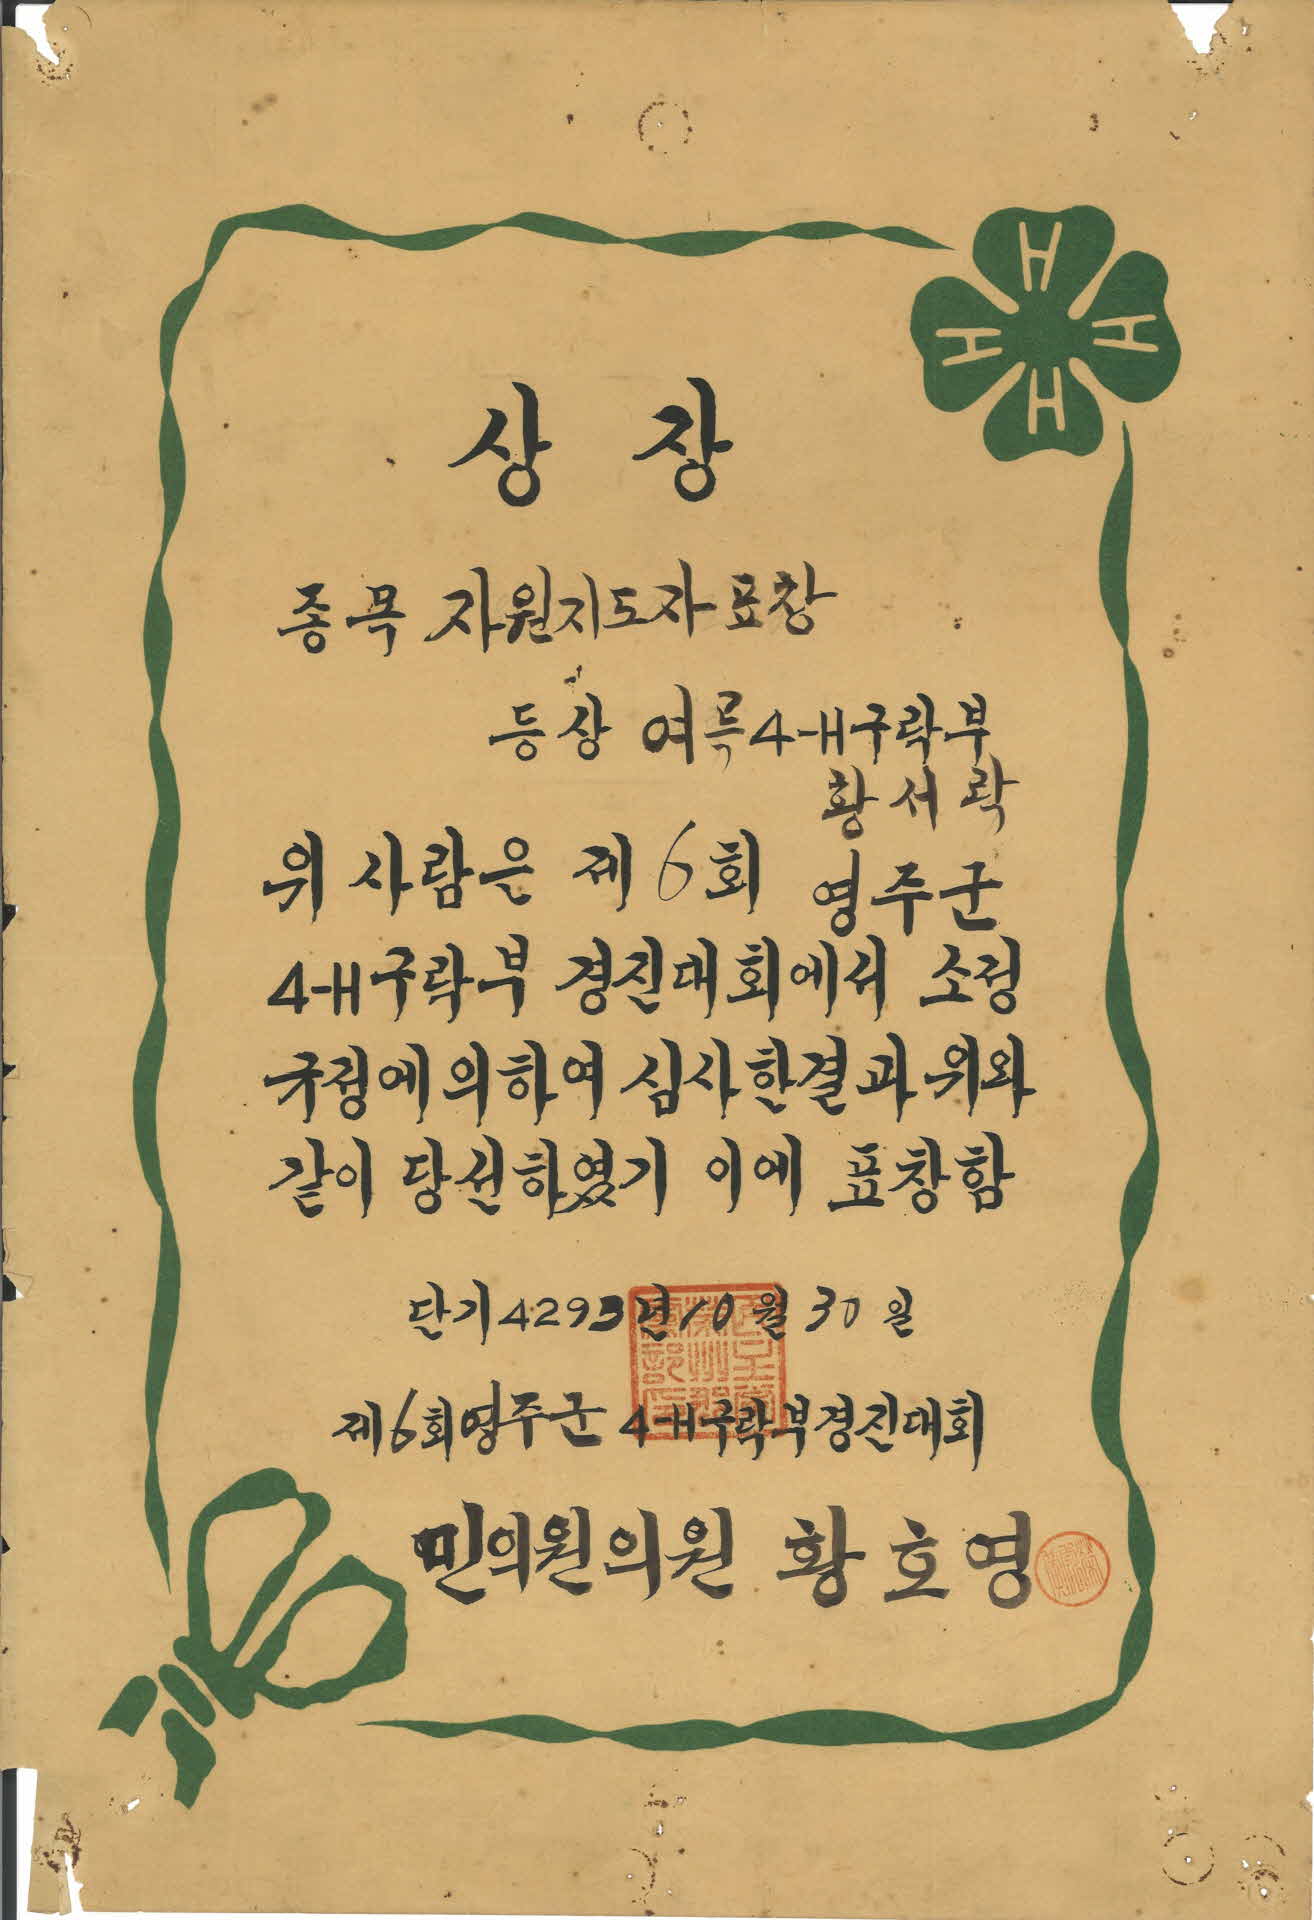 H
H H
H
상 장
종목 자원지도자표창
등상 여륵4-H구락부
황서락
위 사람은 제6회 영주군
4-H구락부 경진대회에서 소정
규정에의하여 심사한결과 위와
같이 당선하였기 이에 표창함
단기4293년10월30일
제6회영주군 4-H구락부경진대회
민의원의원 황호영